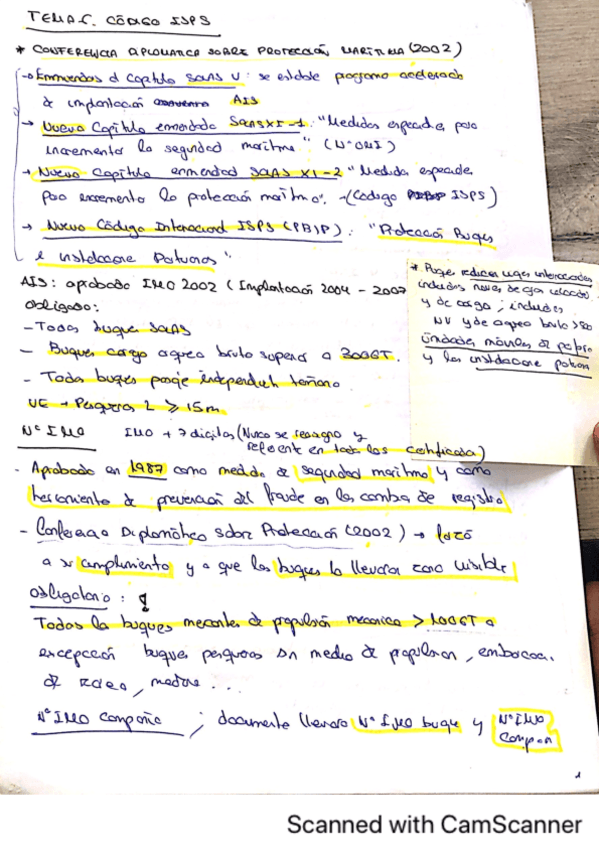 TEMA C. CÓDIGO ISPS
* CONFERENCIA DIPLOMATICA SOBRE PROTECCIÓN MARITIMA (2002)
→ Enmiendas al Capitulo SOLAS V: se establece programa acelerado
de implantación AIS
→ Nuevo Capítulo enmendado SOLAS XI-1: "Medidas especiales para
incrementar la seguridad maritima" (Nº OMI)
→ Nuevo Capítulo enmendado SOLAS XI-2 "Medidas especiales
para incrementar la protección maritima". →(Código ISPS)
→ Nuevo Código Internacional ISPS (PBIP): "Protección Buques
e instalaciones Portuarias"
AIS: aprobado IMO 2002 (Implantación 2004 - 2007
obligado:
- Todos buques SOLAS
- Buques carga arqueo bruto superior a 300GT.
- Todos buques pasaje independiente tamaño.
UE → Pesqueros L ≥ 15m
* Pasaje incluidos naves de gran velocidad
y de carga; incluidas
NV y de arqueo bruto >500
unidades móviles de
y las instalaciones portuarias
Nº IMO IMO + 7 digitos (Nunca se reasigna y
en todos los certificados)
- Aprobado en 1987 como medida de seguridad maritima y como
herramienta de prevención del fraude en los cambios de registro
- Conferencia Diplomática sobre Protección (2002) →
a su cumplimiento y a que los buques lo llevaran zona visible
obligatorio:
Todos los buques mercantes de propulsión mecanica > 100GT a
excepción buques pesqueros sin medio de propulsion, embarcac.
de recreo, madera ...
Nº IMO Compañia ; documentos llevaran Nº IMO buque y Nº IMO
Compañ
1
Scanned with CamScanner